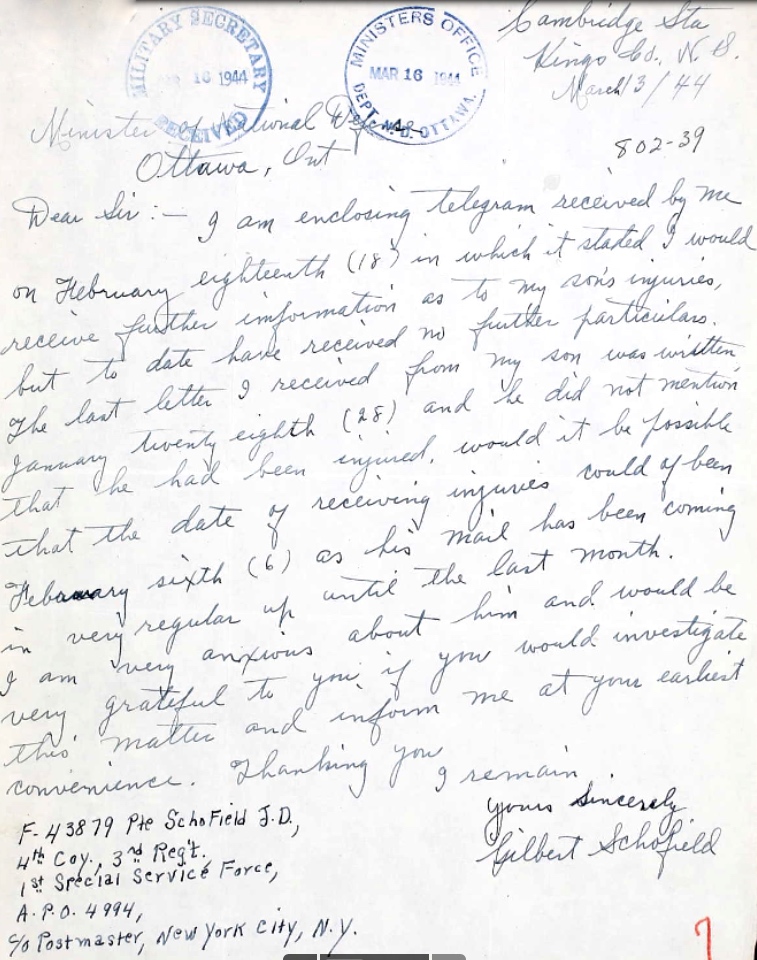 MILITARY SECRETARY
16 1944
RECEIVED
MINISTERS OFFICE
MAR 16 1944
DEPT. N.D. OTTAWA.
Cambridge Sta
Kings Co., N.S.
March 13/44
802-39
Minister of National Defense
Ottawa, Ont
Dear Sir:— I am enclosing telegram received by me
on February eighteenth (18) in which it stated I would
receive further imformation as to my son's injuries,
but to date have received no further particulars.
The last letter I received from my son was written
January twenty eighth (28) and he did not mention
that he had been injured, would it be possible
that the date of receiving injuries could of been
February sixth (6) as his mail has been coming
in very regular up until the last month.
I am very anxious about him and would be
very grateful to you if you would investigate
this matter and inform me at your earliest
convenience. Thanking you
I remain
yours Sincerely
Gilbert Schofield
F-43879 Pte Schofield J.D.,
4th Coy., 3rd Reg't.,
1st Special Service Force,
A.P.O. 4994,
c/o Postmaster, New York City, N.Y.
7